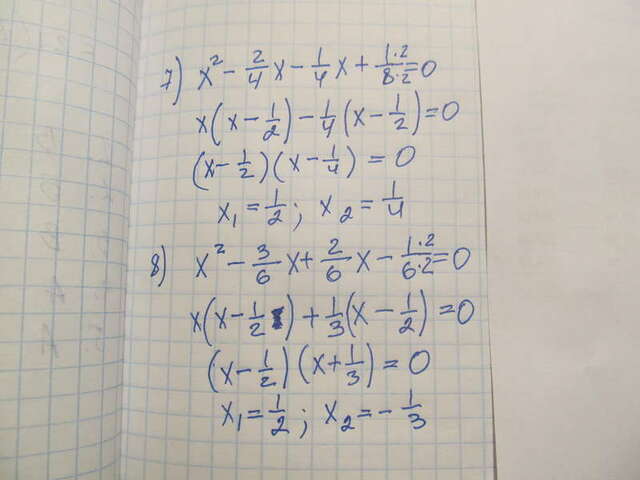 7) x² - 2/4 x - 1/4 x + (1·2)/(8·2) = 0
x(x - 1/2) - 1/4 (x - 1/2) = 0
(x - 1/2)(x - 1/4) = 0
x₁ = 1/2; x₂ = 1/4
8) x² - 3/6 x + 2/6 x - (1·2)/(6·2) = 0
x(x - 1/2) + 1/3 (x - 1/2) = 0
(x - 1/2)(x + 1/3) = 0
x₁ = 1/2; x₂ = - 1/3